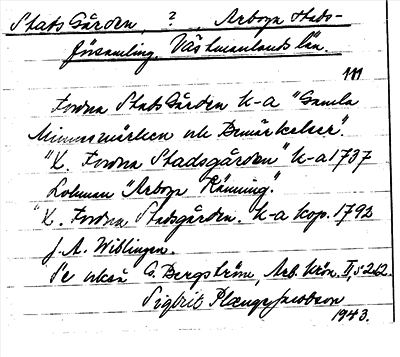 Stads Gården, ?, Arboga stads-
församling. Västmanlands län.
111
Fordna Stads Gården k-a "Gamla
Minnesmärken och Bemärkelser".
"K. Fordna Stadsgården" k-a 1737
Lohman "Arboga Känning".
"K. Fordna Stadsgården. k-a kop. 1792
J. A. Wiblingen.
Se också G. Bergström, Arb. krön. II, s 262.
Sigbrit Plænge Jacobson
1943.